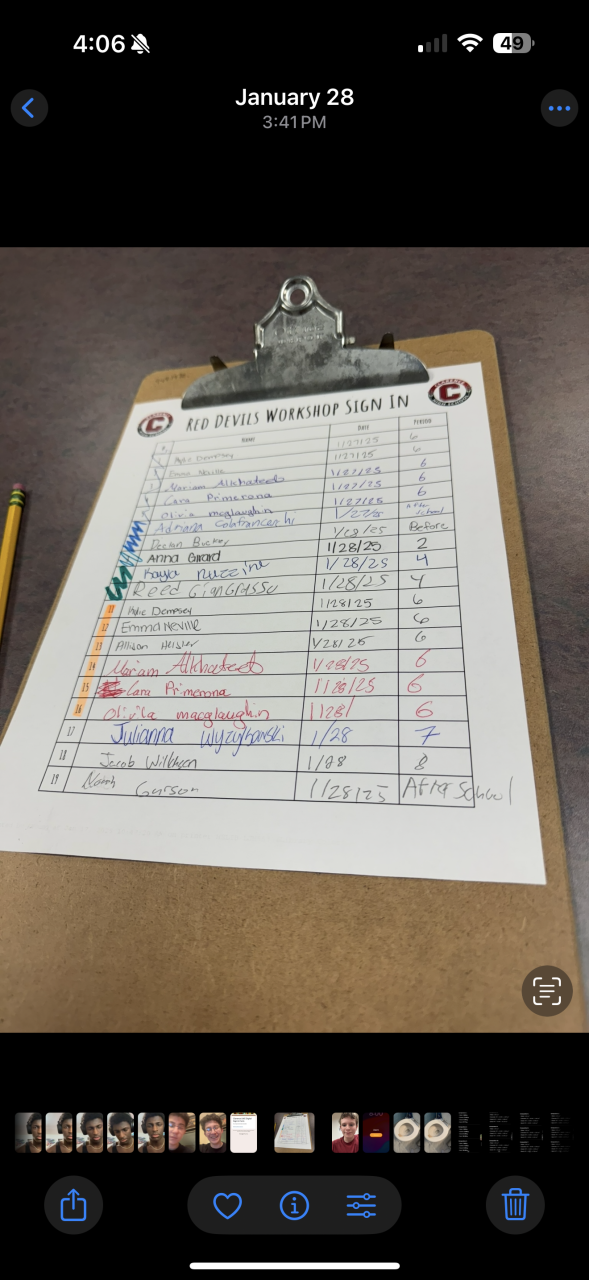 4:06
49
January 28
3:41 PM
C
C
RED DEVILS WORKSHOP SIGN IN
# Name Date Period
1/27/25 6
Dempsey 1/27/25 6
Emma Neville 1/27/25 6
Mariam Alkhateeb 1/27/25 6
Cara Primerana 1/27/25 6
Olivia macglaughlin 1/27/25 After school
Adriana 25 Before
Declan 1/28/25 2
Anna Girard 1/28/25 4
Kayla 1/28/25 4
Reed
11 Dempsey 1/28/25 6
12 Emma Neville 1/28/25 6
13 Allison 1/28/25 6
14 Mariam Alkhateeb 1/28/25 6
15 Cara Primerana 1/28/25 6
16 Olivia macglaughin 1/28/ 6
17 Julianna 1/28 7
18 Jacob 1/28 8
19 Noah 1/28/25 After School